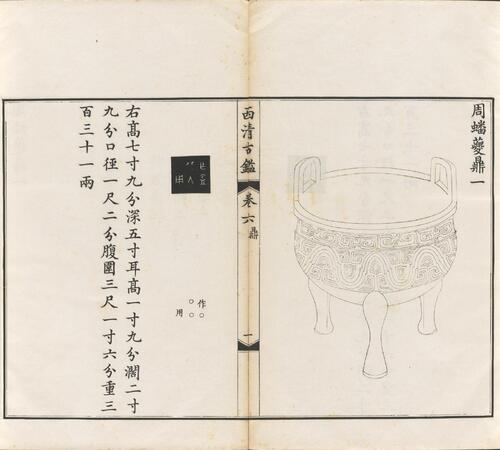 周蟠夔鼎一
西清古鑑 卷六 鼎 一
作○
○○
用
右高七寸九分深五寸耳高一寸九分濶二寸
九分口徑一尺二分腹圍三尺一寸六分重三
百三十一兩